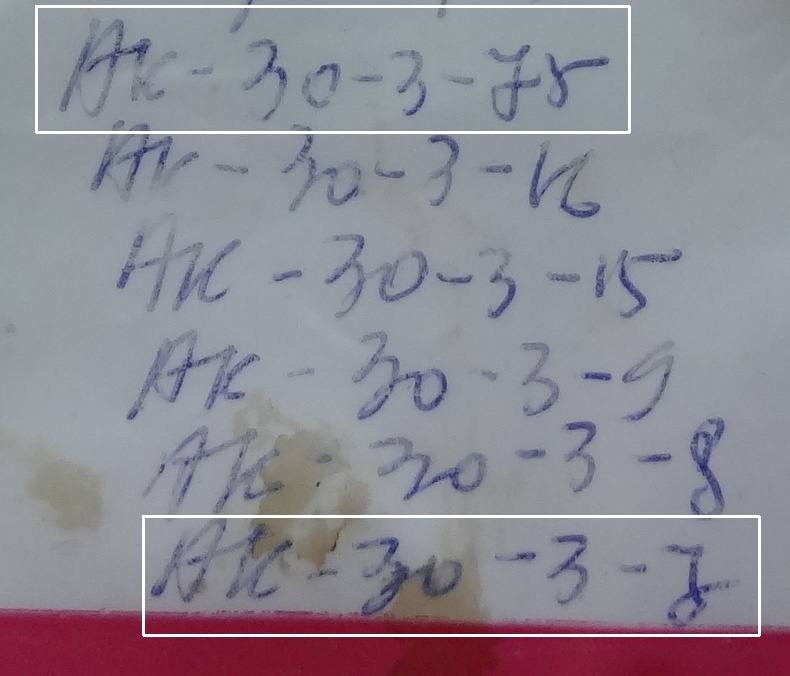 AK-30-3-75
AK-30-3-16
AK-30-3-15
AK-30-3-9
AK-30-3-8
AK-30-3-7